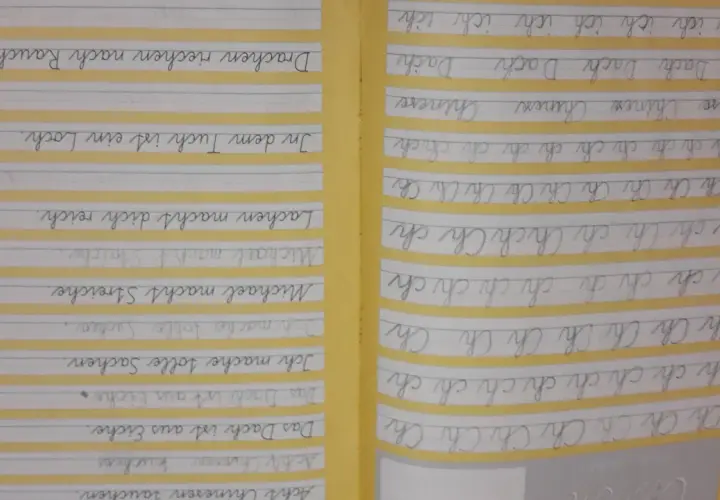 Ch Ch Ch Ch Ch Ch Ch
ch ch ch ch ch ch ch
Ch Ch Ch Ch Ch Ch
ch ch ch ch ch ch ch
ch Ch ch Ch ch Ch ch
Ch Ch Ch Ch Ch Ch Ch Ch
ch ch ch ch ch ch ch ch
Chinese Chinese
Dach Dach Dach Dach
ich ich ich ich ich
Acht Chinesen tauchen.
Acht
Das Dach ist aus Eiche.
Das Dach ist aus Eiche.
Ich mache tolle Sachen.
Ich mache tolle Sachen.
Michael macht Streiche.
Michael macht Streiche.
Lachen macht dich reich.
In dem Tuch ist ein Loch.
Drachen riechen nach Rauch